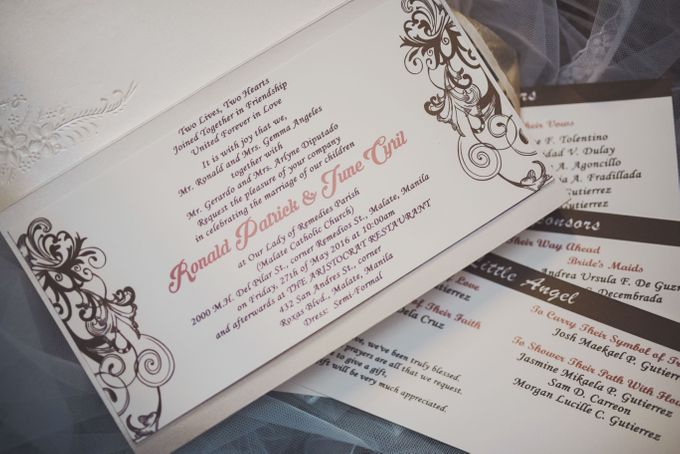 Two Lives, Two Hearts
Joined Together in Friendship
United Forever in Love
It is with joy that we,
Mr. Ronald and Mrs. Gemma Angeles
together with
Mr. Gerardo and Mrs. Arlyne Diputado
Request the pleasure of your company
in celebrating the marriage of our children
Ronald Patrick & June Cyril
at Our Lady of Remedies Parish
(Malate Catholic Church)
2000 M.H. Del Pilar St., corner Remedios St., Malate, Manila
on Friday, 27th of May 2016 at 10:00am
and afterwards at THE ARISTOCRAT RESTAURANT
432 San Andres St., corner
Roxas Blvd., Malate, Manila
Dress: Semi-Formal
Their Vows
F. Tolentino
V. Dulay
A. Agoncillo
A. Fradillada
Gutierrez
Their Way Ahead
Bride's Maids
Andrea Ursula F. De Guzm
Decembrada
Little Angel
To Carry Their Symbol of Tr
Josh Maekael P. Gutierrez
To Shower Their Path With Flow
Jasmine Mikaela P. Gutierrez
Sam D. Carreon
Morgan Lucille C. Gutierrez
of Their Faith
ela Cruz
we've been truly blessed.
prayers are all that we request.
to give a gift,
ft will be very much appreciated.